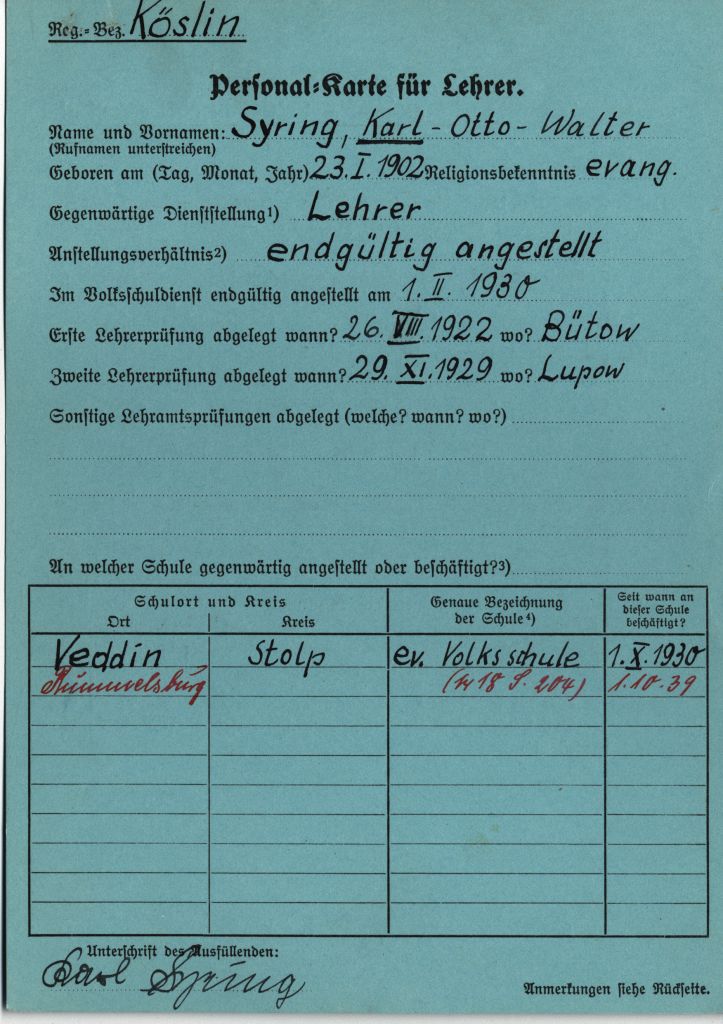 Reg.-Bez. Köslin
Personal-Karte für Lehrer.
Name und Vornamen: Syring, Karl-Otto-Walter
(Rufnamen unterstreichen)
Geboren am (Tag, Monat, Jahr) 23.I.1902 Religionsbekenntnis evang.
Gegenwärtige Dienststellung¹) Lehrer
Anstellungsverhältnis²) endgültig angestellt
Im Volksschuldienst endgültig angestellt am 1.II.1930
Erste Lehrerprüfung abgelegt wann? 26.VIII.1922 wo? Bütow
Zweite Lehrerprüfung abgelegt wann? 29.XI.1929 wo? Lupow
Sonstige Lehramtsprüfungen abgelegt (welche? wann? wo?)
An welcher Schule gegenwärtig angestellt oder beschäftigt?³)
Schulort und Kreis
Ort Kreis
Genaue Bezeichnung
der Schule⁴)
Seit wann an
dieser Schule
beschäftigt?
Veddin Stolp ev. Volksschule 1.X.1930
Rummelsburg 18 S. 204) 1.10.39
Unterschrift des Ausfüllenden:
Karl Syring
Anmerkungen siehe Rückseite.